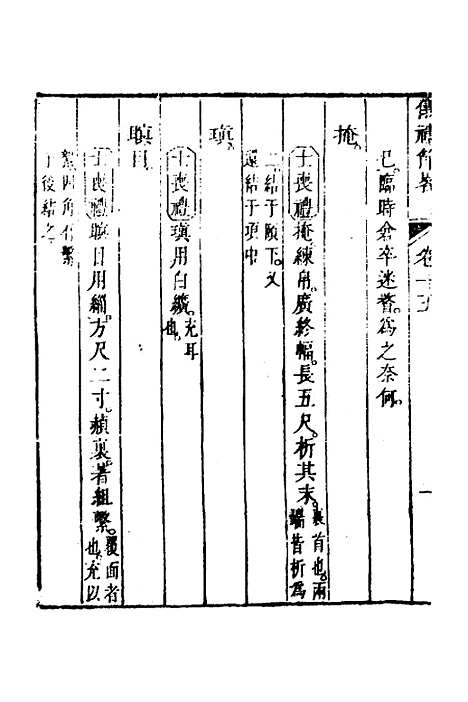 儀禮節畧 卷十五
已臨時倉卒迷瞀為之奈何
掩
士喪禮掩練帛廣終幅長五尺析其末裹首也兩端皆析為
二結于頤下又還結于項中
瑱
士喪禮瑱用白纊充耳也
瞑目
士喪禮瞑目用緇方尺二寸䞓裏著組繫覆面者也充以
絮四角有繫于後結之